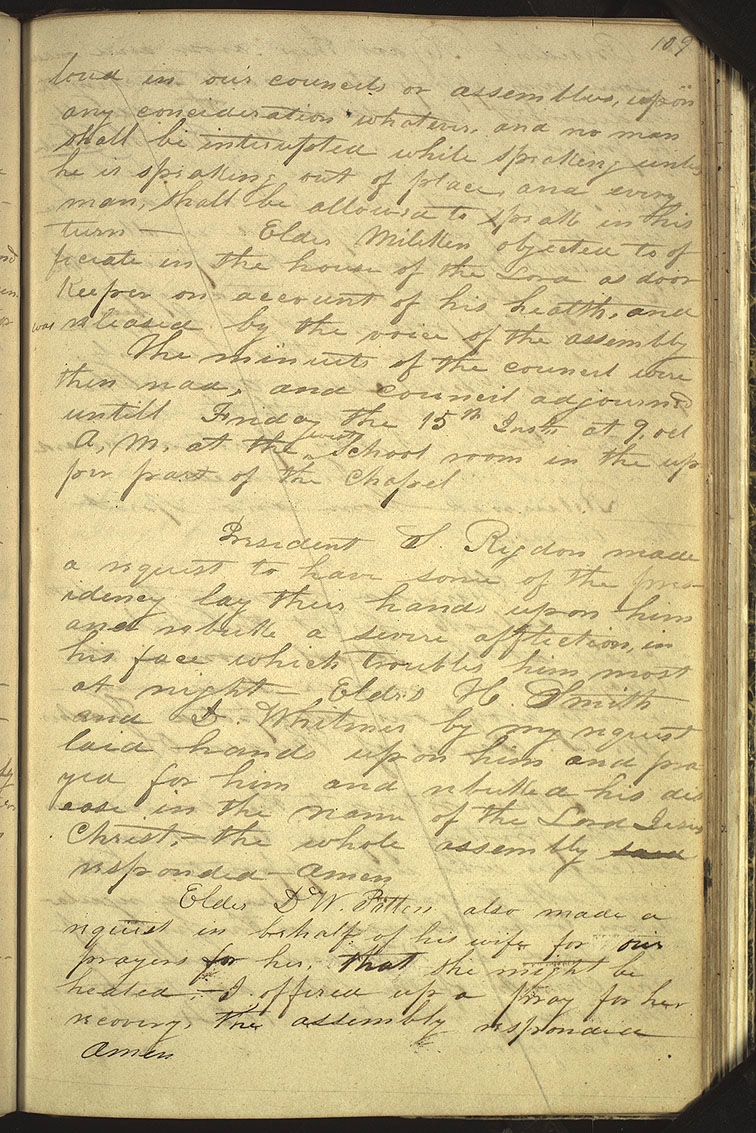 109
loud in our councils or assemblies, upon
any concideration whatever, and no man
shall be interupted while speaking unless
he is speaking out of place, and every
man, shall be allowed to speak in his
turn — Elder Miliken objected to of
ficiate in the house of the Lord as door
Keeper on account of his health, and
was released by the voice of the assembly
The minuets of the council were
then read, and council adjourned
untill Friday the 15th Inst. at 9, ocl
A, M. at the west School room in the up
per part of the Chapel
President S Rigdon made
a request to have some of the pres
idency lay their hands upon him
and rebuke a severe affliction, in
his face which troubles him most
at night — Elders H. Smith
and D. Whitmer by my request
laid hands upon him and pra
yed for him and rebuked his dis
ease in the name of the Lord Jesus
Christ, — the whole assembly said
responded — Amen
Elder D W. Patten also made a
request in behalf of his wife for our
prayers for her, that she might be
healed, — I offered up a pray for her
recovery, the assembly responded
Amen